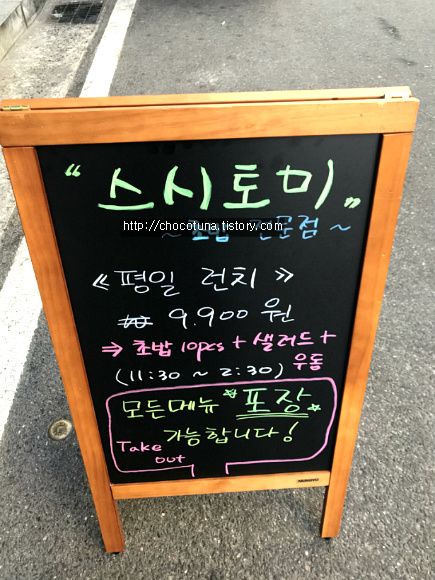 "스시토미"
http://chocotuna.tistory.com
~ 초밥 전문점 ~
《평일 런치》
₩ 9.900 원
⇒ 초밥 10pcs + 샐러드 + 우동
(11:30 ~ 2:30)
모든메뉴 *포장*
가능합니다!
Take out